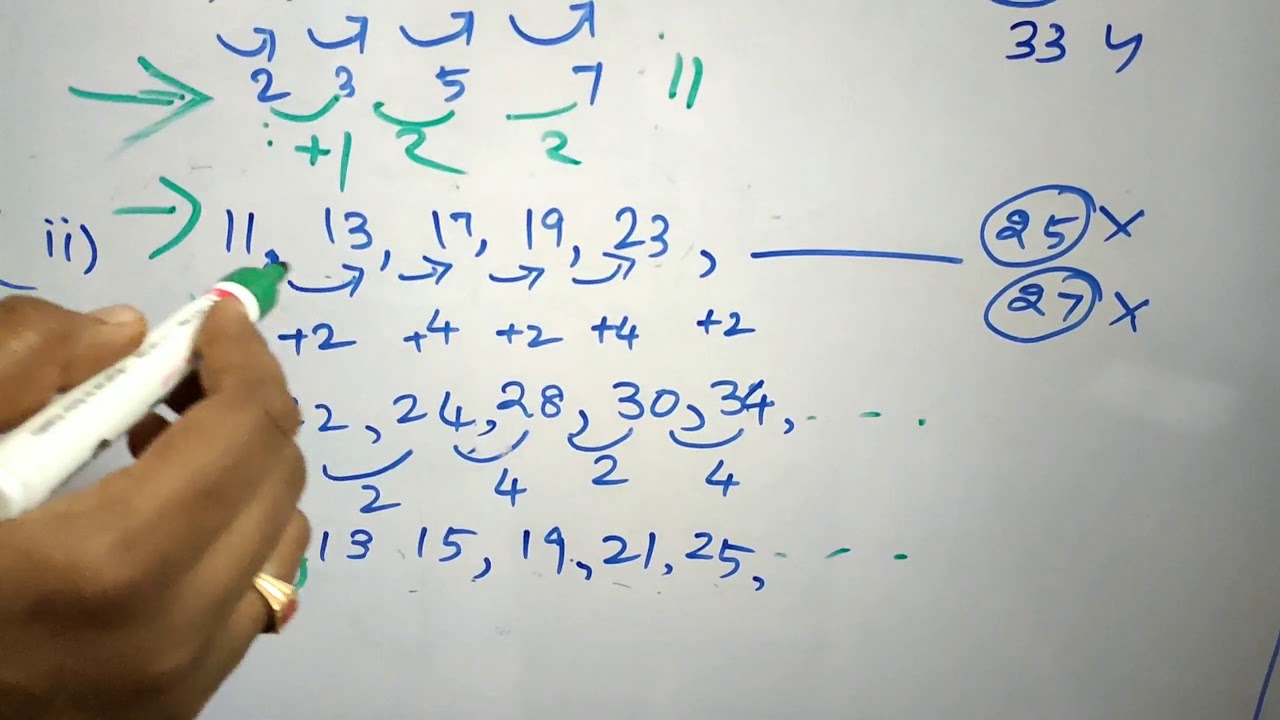 33 y
2 3 5 7 11
+1 2 2
ii) 11, 13, 17, 19, 23, ______ 25 x
27 x
+2 +4 +2 +4 +2
2, 24, 28, 30, 34, - - .
2 4 2 4
13 15, 19, 21, 25, - - -